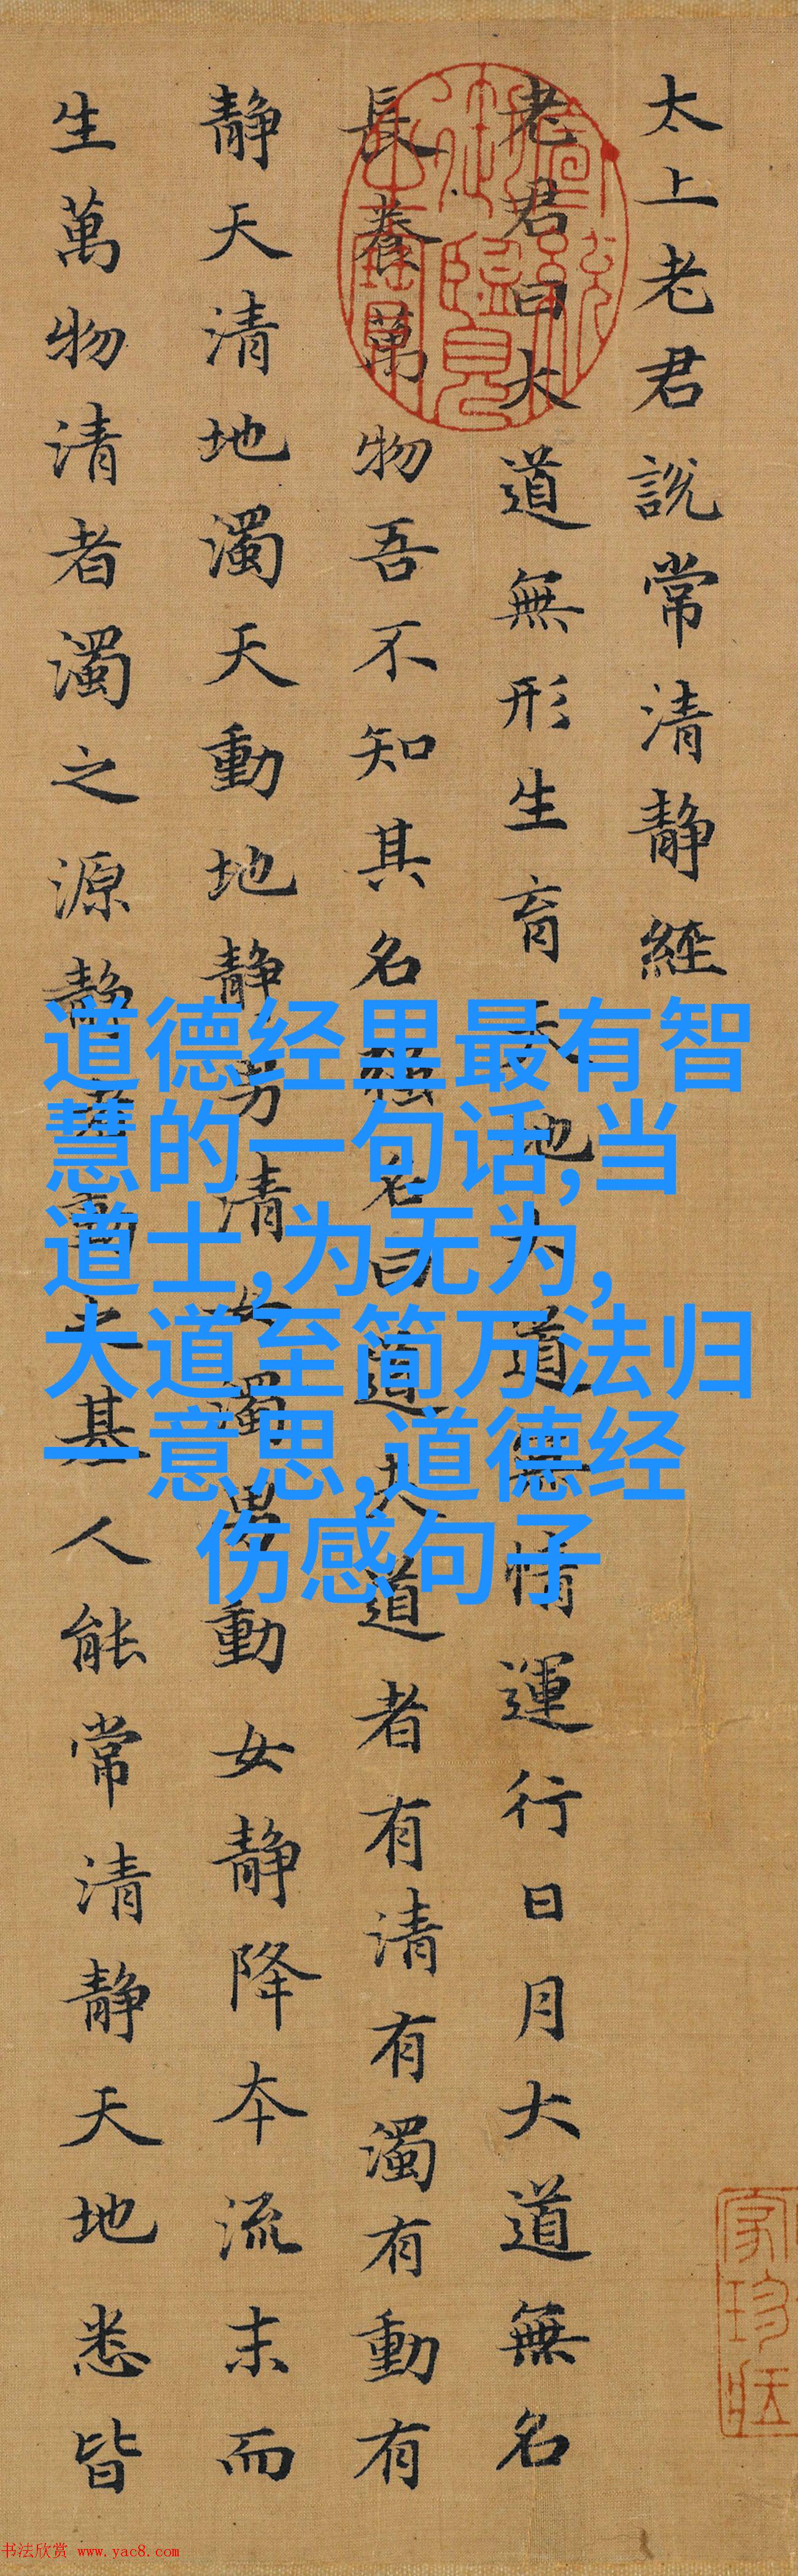 太上老君說常清靜經
老君曰大道無形生育天地大道無情運行日月大道無名
長養萬物吾不知其名強名曰道夫道者有清有濁有動有
靜天清地濁天動地靜男清女濁男動女靜降本流末而
生萬物清者濁之源靜者動之基人能常清靜天地悉皆
道德经里最有智
慧的一句话,当
道士,为无为,
大道至简万法归
一意思,道德经
伤感句子
书法欣赏 www.yac8.com